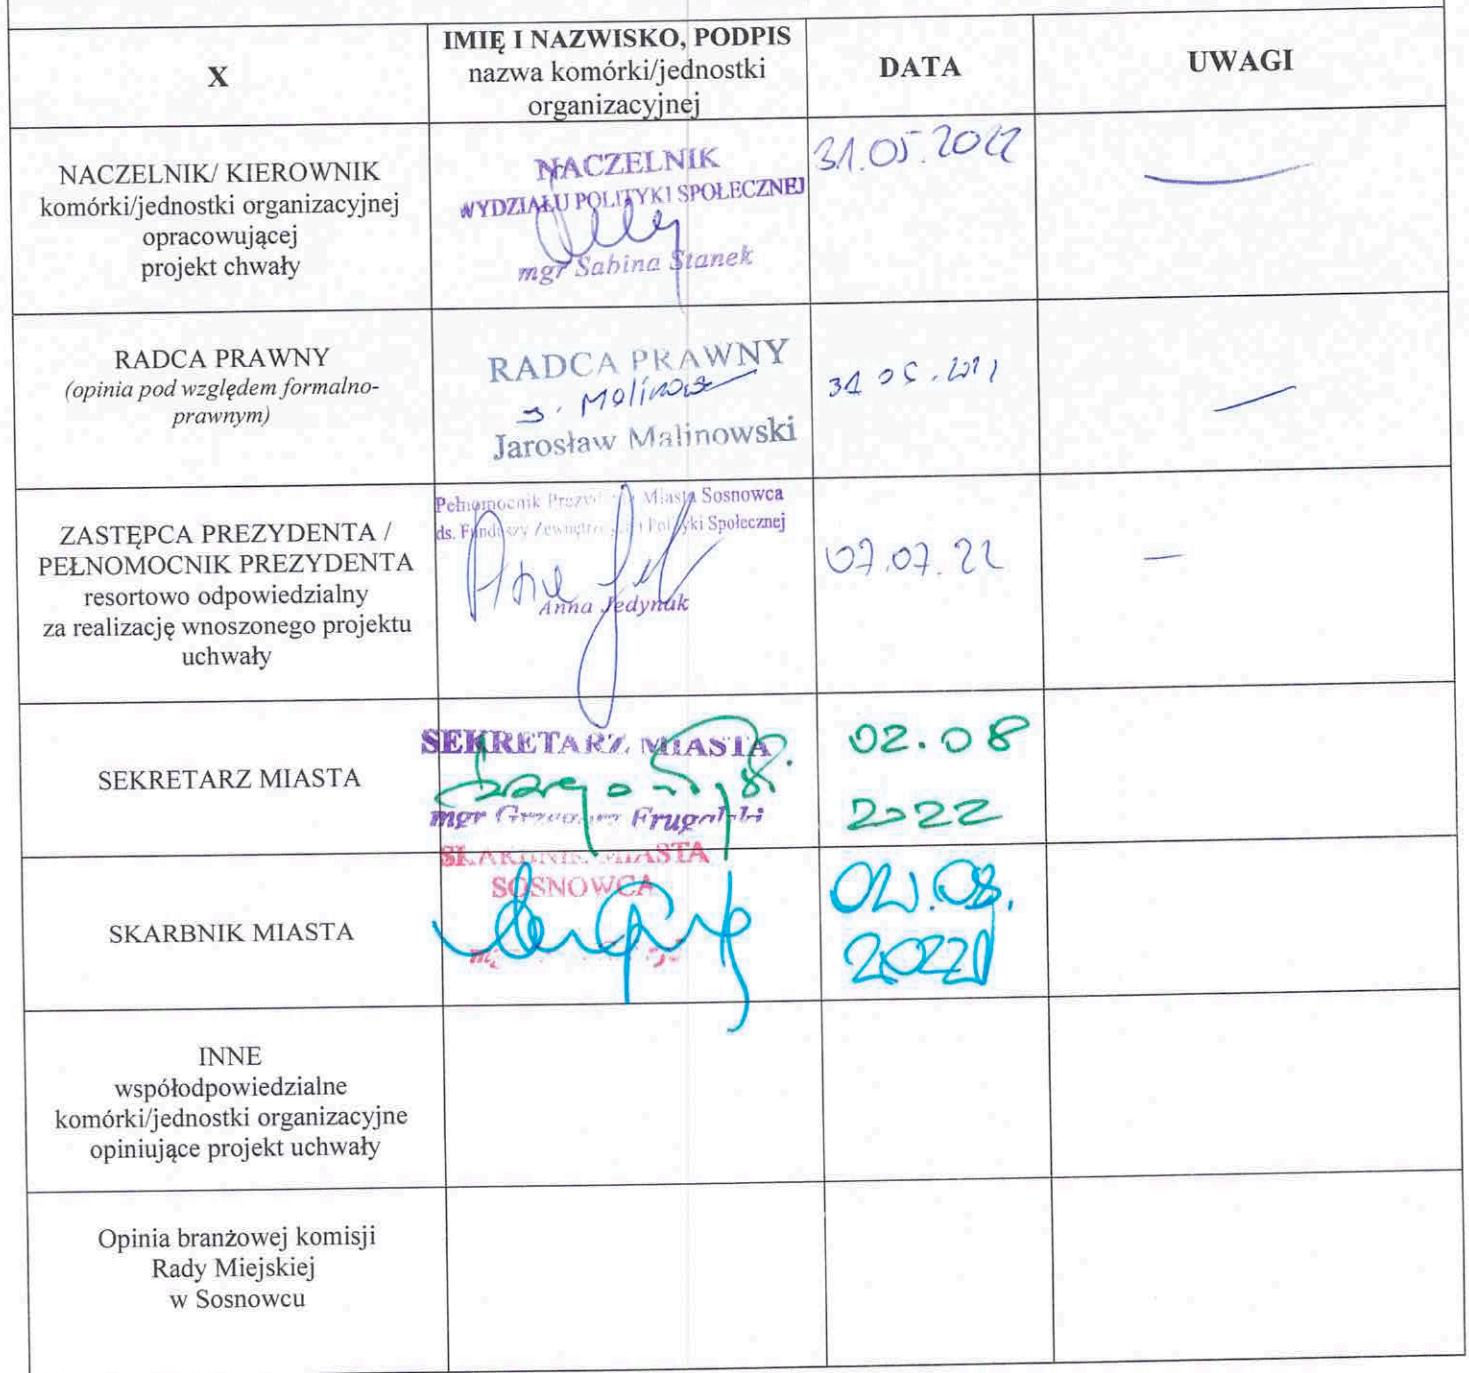 X
IMIĘ I NAZWISKO, PODPIS
nazwa komórki/jednostki
organizacyjnej
DATA
UWAGI
NACZELNIK/ KIEROWNIK
komórki/jednostki organizacyjnej
opracowującej
projekt chwały
NACZELNIK
WYDZIAŁU POLITYKI SPOŁECZNEJ
mgr Sabina Stanek
31.05.2022
RADCA PRAWNY
(opinia pod względem formalno-
prawnym)
RADCA PRAWNY
Jarosław Malinowski
31 05.
ZASTĘPCA PREZYDENTA /
PEŁNOMOCNIK PREZYDENTA
resortowo odpowiedzialny
za realizację wnoszonego projektu
uchwały
Pełnomocnik Miasta Sosnowca
ds. Funduszy i Polityki Społecznej
Anna Jedynak
07.07.22
SEKRETARZ MIASTA
SEKRETARZ MIASTA
mgr
02.08
2022
SKARBNIK MIASTA
SKARBNIK MIASTA
SOSNOWCA
02.08.
2022
INNE
współodpowiedzialne
komórki/jednostki organizacyjne
opiniujące projekt uchwały
Opinia branżowej komisji
Rady Miejskiej
w Sosnowcu